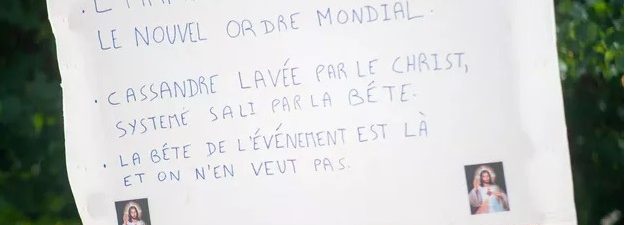 LE NOUVEL ORDRE MONDIAL.
. CASSANDRE LAVÉE PAR LE CHRIST,
SYSTEMÉ SALI PAR LA BÉTE.
. LA BÉTE DE L'ÉVÉNEMENT EST LÀ
ET ON N'EN VEUT PAS.